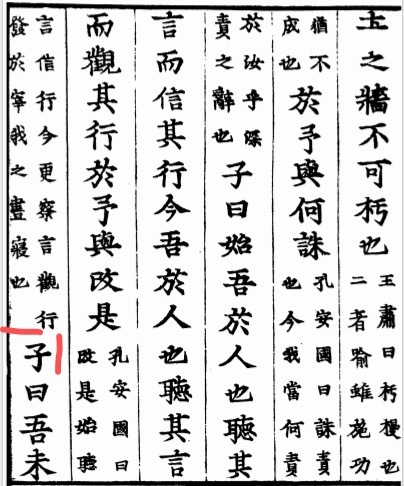 圡之牆不可杇也王肅曰杇慢也二者喻雖施功
猶不成也於予與何誅孔安國曰誅責也今我當何責
於汝乎深責之辭也子曰始吾於人也聽其
言而信其行今吾於人也聽其言
而觀其行於予與改是孔安國曰改是始聽
言信行今更察言觀行發於宰我之晝寢也子曰吾未